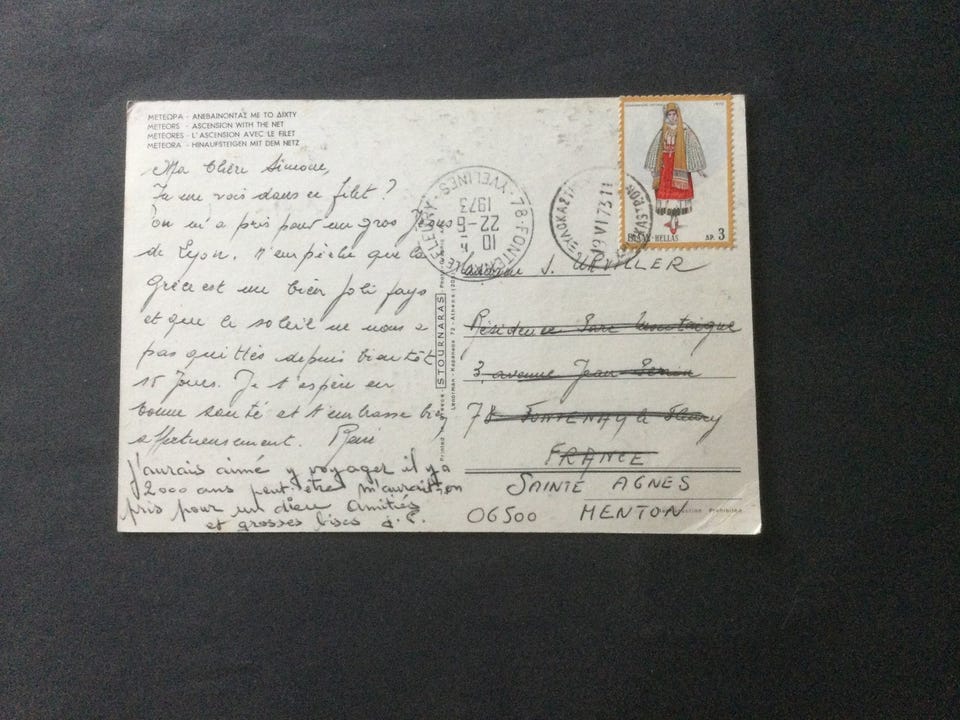 ΜΕΤΕΩΡΑ - ΑΝΕΒΑΙΝΟΝΤΑΣ ΜΕ ΤΟ ΔΙΧΤΥ
METEORS - ASCENSION WITH THE NET
METEORES - L'ASCENSION AVEC LE FILET
METEORA - HINAUFSTEIGEN MIT DEM NETZ
Ma Chère Simone,
Tu me vois dans ce filet ?
On m'a pris pour un gros
de Lyon. N'empêche que la
Grèce est un bien joli pays
et que le soleil ne nous a
pas quittés depuis bientôt
15 jours. Je t'espère en
bonne santé et t'embrasse bien
affectueusement. René
J'aurais aimé y voyager il y a
2000 ans peut-être m'aurait-on
pris pour un dieu Amitiés
et grosses bises
78-FONTENAY-LE-FLEURY
YVELINES
10 H
22-6
1973
ΞΥΛΟΚΑΣΤΡΟΝ
19 VI 73 11
ΕΛΛΑΣ-HELLAS
ΔΡ. 3
STOURNARAS
Madame S. URVILLER
Résidence Parc Montaigne
3, avenue Jean
78 FONTENAY le Fleury
FRANCE
SAINTE AGNES
06500 MENTON
Reproduction Prohibited